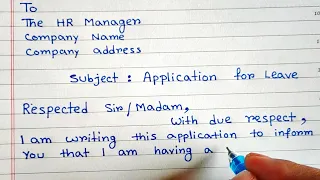 To
The HR Manager
Company Name
Company address
Subject : Application for Leave
Respected Sir/Madam,
With due respect,
I am writing this application to inform
You that I am having a